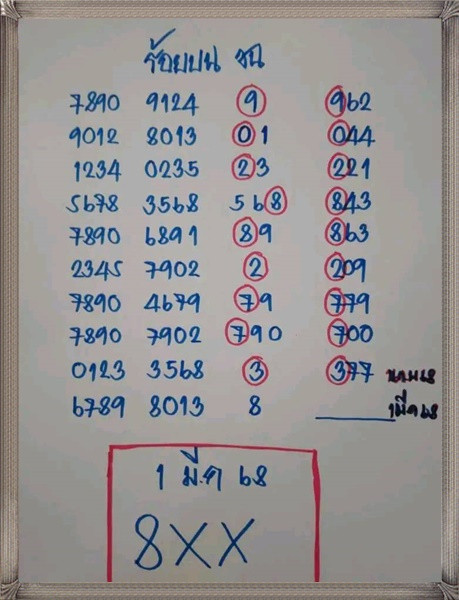 ร้อยบน ชน
7890 9124 9 962
9012 8013 01 044
1234 0235 23 221
5678 3568 568 843
7890 6891 89 863
2345 7902 2 209
7890 4679 79 779
7890 7902 790 700
0123 3568 3 377
6789 8013 8 1มีค68
1 มี.ค 68
8XX